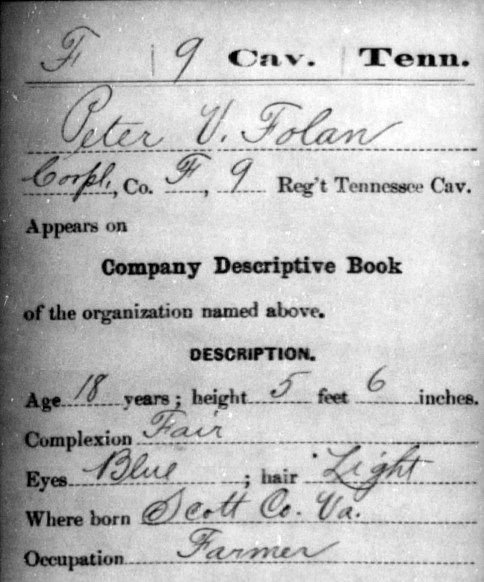 F | 9 | Cav. | Tenn.
Peter V. Folan
Corpl., Co. F, 9 Reg't Tennessee Cav.
Appears on
Company Descriptive Book
of the organization named above.
DESCRIPTION.
Age 18 years; height 5 feet 6 inches.
Complexion Fair
Eyes Blue; hair Light
Where born Scott Co. Va.
Occupation Farmer